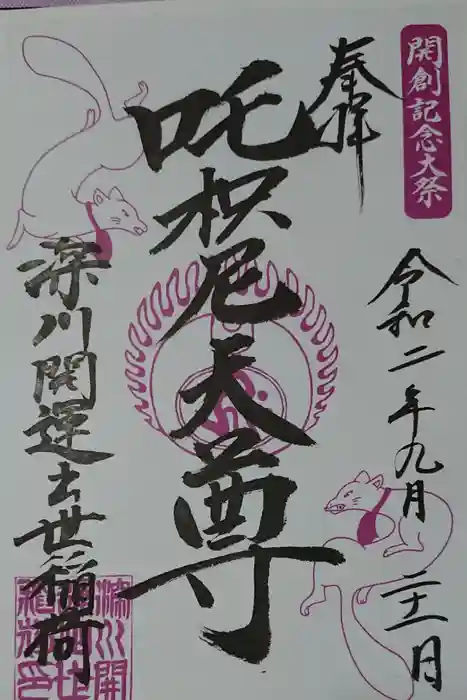 開創記念大祭
奉拝
令和二年九月二十一日
吒枳尼天尊
深川開運出世稲荷